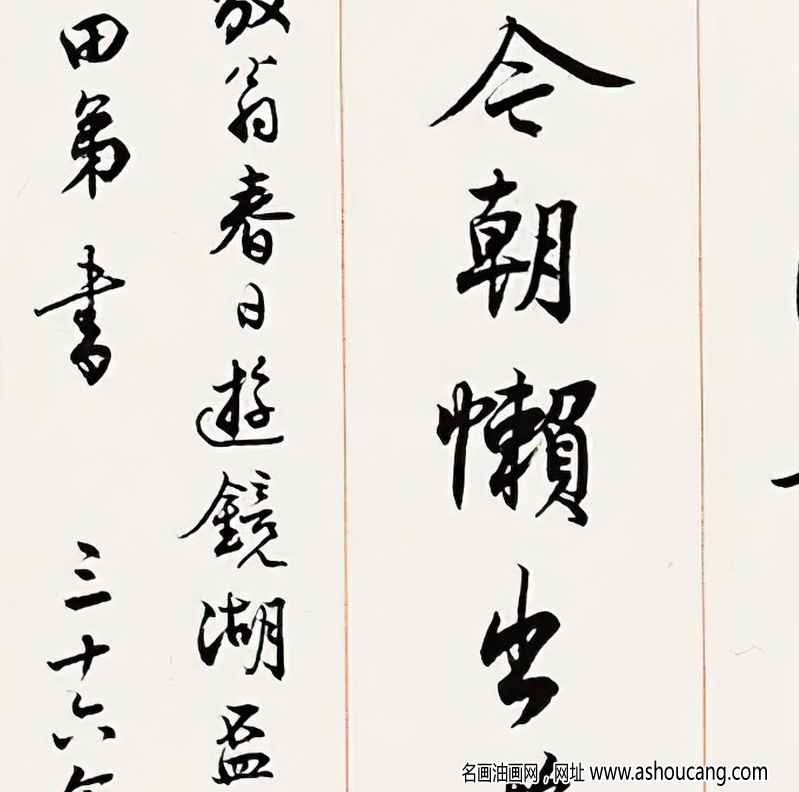 今朝懶出
翁春日遊鏡湖孟
田弟書 三十六年
名画油画网。网址 www.ashoucang.com